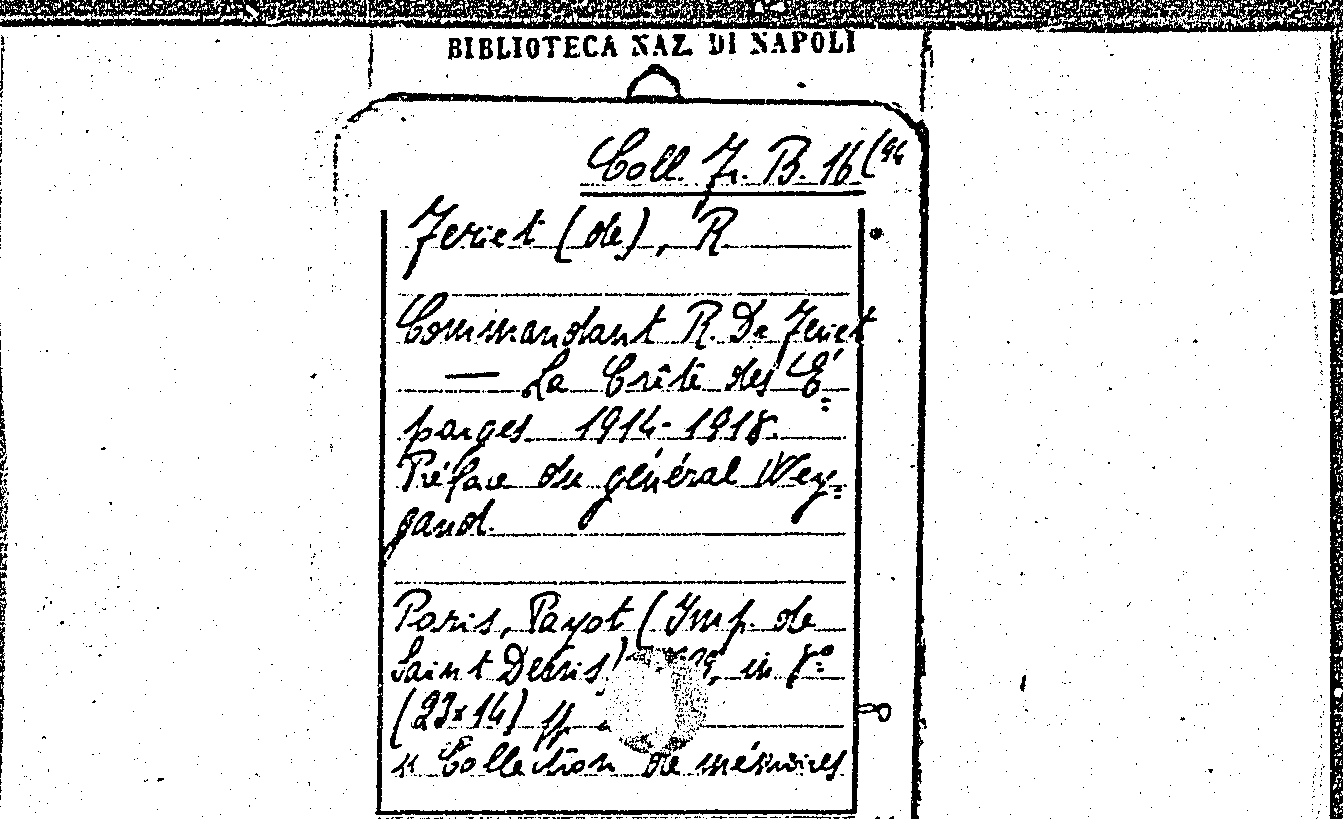 BIBLIOTECA NAZ. DI NAPOLI
Coll. Fr. B. 16 (94
Feriet (de), R
Commandant R. De Feriet
— La Crête des É=
parges 1914-1918.
Préface du général Wey=
gand.
Paris, Payot (Imp. de
Saint Denis) in 8°
(23x14) pp
« Collection de mémoires